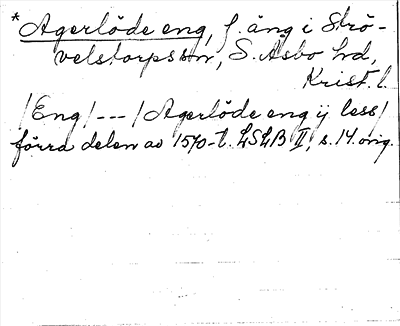 *Agerlöde eng, f. äng i Strö-
velstorpssn, S. Åsbo hd,
Krist. l.
/Eng/ --- / Agerlöde eng ij less/
förra delen av 1570-t. LSLB II, s. 14. orig.